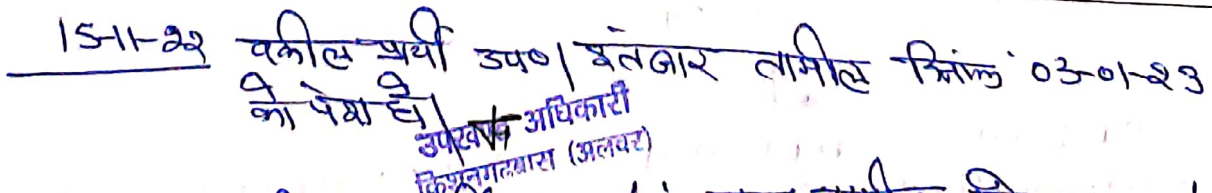 15-11-22 वकील प्रार्थी उप०। इंतजार तामील दिनांक 03-01-23
को पेश हो।
उपखण्ड अधिकारी
किशनगढ़बास (अलवर)